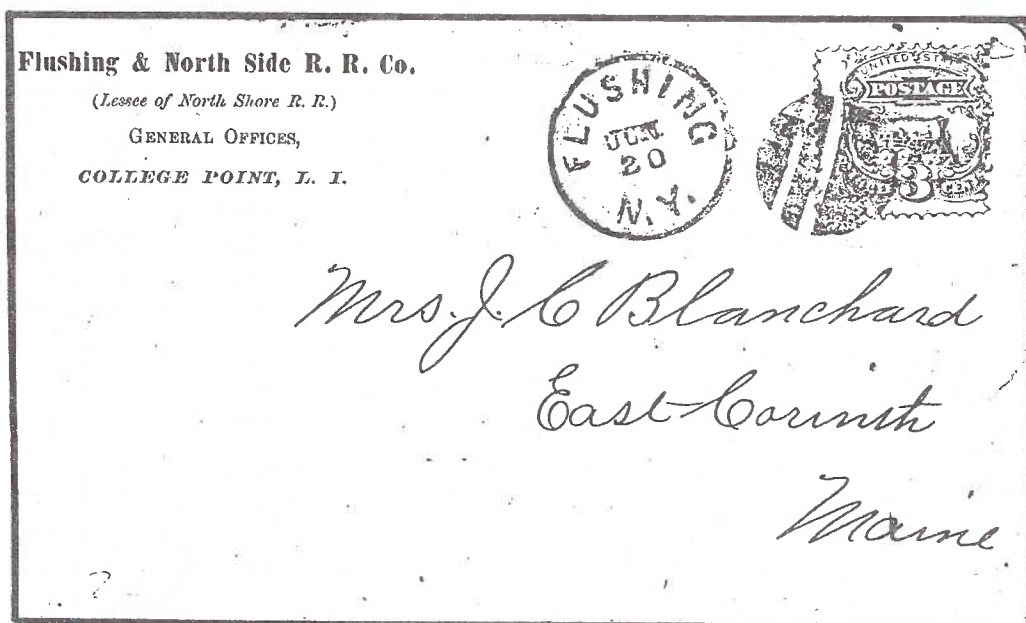 Flushing & North Side R. R. Co.
(Lessee of North Shore R. R.)
GENERAL OFFICES,
COLLEGE POINT, L. I.
FLUSHING
JUN.
20
N.Y.
UNITED STATES
POSTAGE
3
Mrs. J. C Blanchard
East Corinth
Maine
?